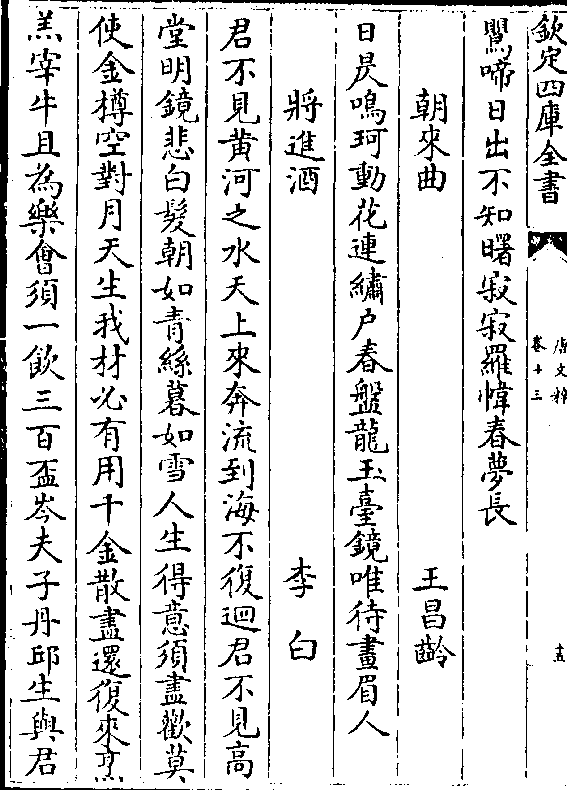 欽定四庫全書
唐文粹
卷十三
十五
鸎啼日出不知曙寂寂羅幃春夢長
朝來曲 王昌齡
日昃鳴珂動花連繡户春盤龍玉臺鏡唯待畫眉人
將進酒 李白
君不見黄河之水天上來奔流到海不復迴君不見高
堂明鏡悲白髮朝如青絲暮如雪人生得意須盡歡莫
使金樽空對月天生我材必有用千金散盡還復來烹
羔宰牛且為樂㑹須一飲三百盃岑夫子丹邱生與君